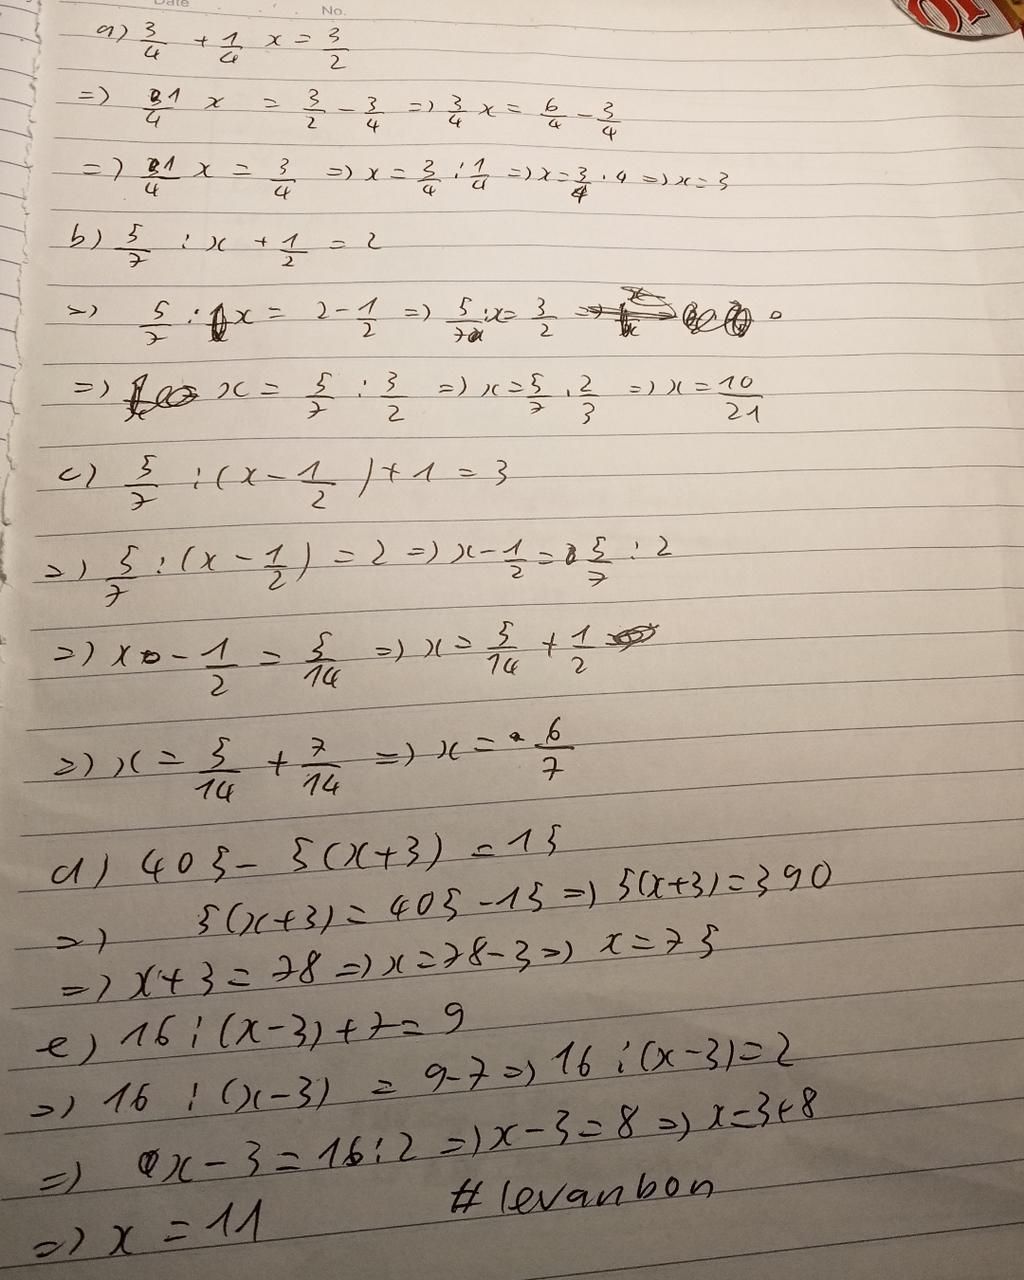 Date No.
a) 3/4 + 1/4 x = 3/2
=) 1/4 x = 3/2 - 3/4 =) 3/4 x = 6/4 - 3/4
=) 1/4 x = 3/4 =) x = 3/4 : 1/4 =) x = 3/4 . 4 =) x = 3
b) 5/7 : x + 1/2 = 2
=) 5/7 : x = 2 - 1/2 =) 5/7 : x = 3/2
=) x = 5/7 : 3/2 =) x = 5/7 . 2/3 =) x = 10/21
c) 5/7 : (x - 1/2) + 1 = 3
=) 5/7 : (x - 1/2) = 2 =) x - 1/2 = 5/7 : 2
=) x - 1/2 = 5/14 =) x = 5/14 + 1/2
=) x = 5/14 + 7/14 =) x = 6/7
d) 405 - 5(x+3) = 15
=) 5(x+3) = 405 - 15 =) 5(x+3) = 390
=) x + 3 = 78 =) x = 78 - 3 =) x = 75
e) 16 : (x-3) + 7 = 9
=) 16 : (x-3) = 9-7 =) 16 : (x-3) = 2
=) x - 3 = 16 : 2 =) x - 3 = 8 =) x = 3+8
=) x = 11 #levanbon